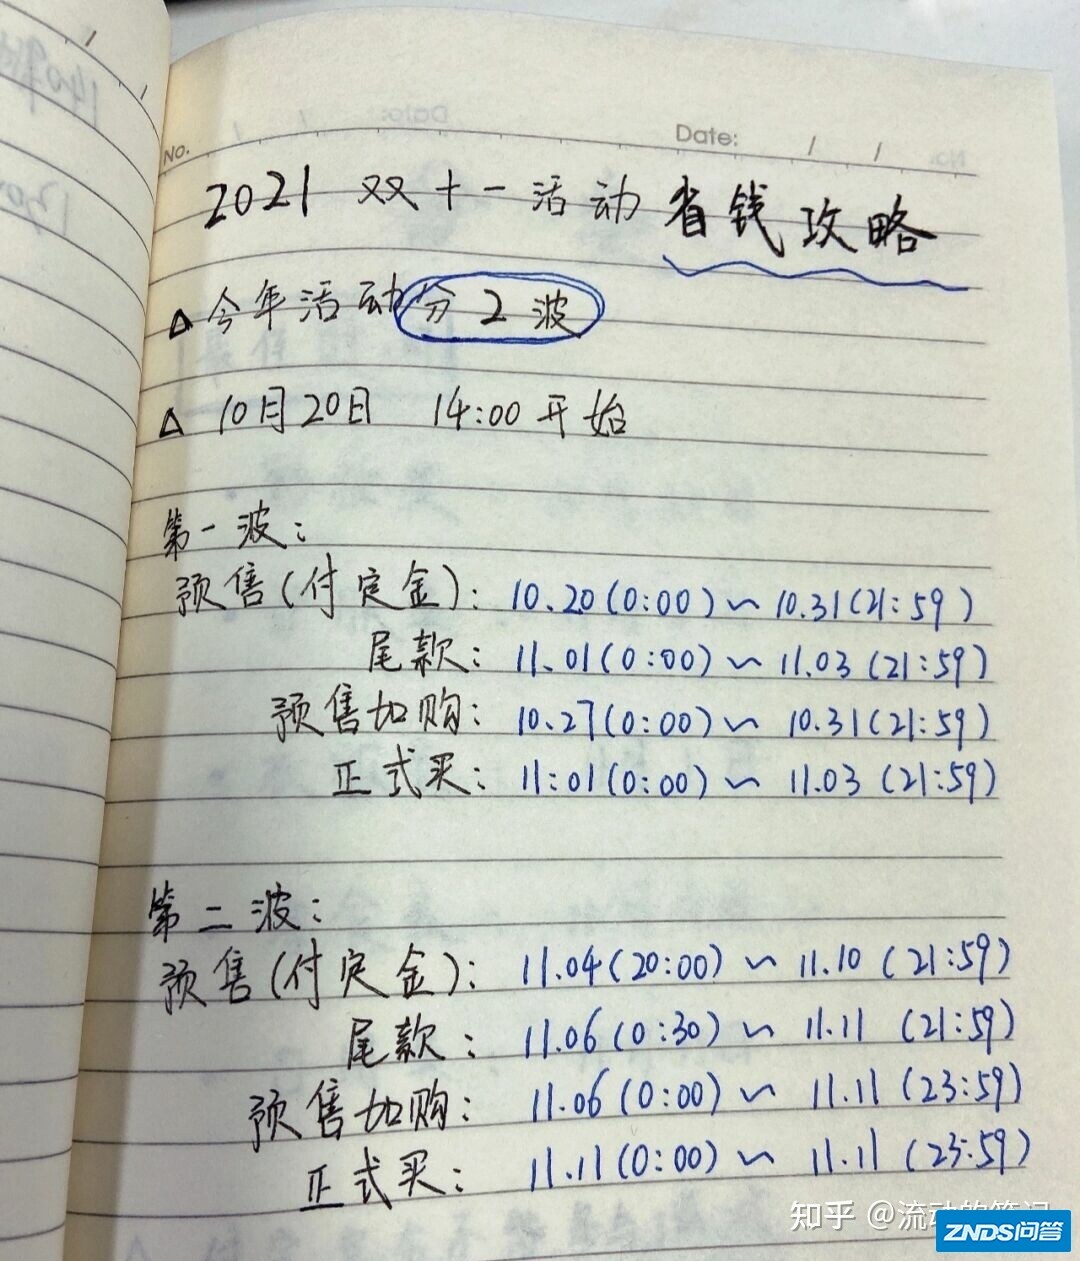 No.
Date: / /
2021 双十一活动省钱攻略
△今年活动分2波
△ 10月20日 14:00开始
第一波:
预售(付定金): 10.20(0:00)~10.31(21:59)
尾款: 11.01(0:00)~11.03(21:59)
预售加购: 10.27(0:00)~10.31(21:59)
正式买: 11:01(0:00)~11.03(21:59)
第二波:
预售(付定金): 11.04(20:00)~11.10(21:59)
尾款: 11.06(0:30)~11.11(21:59)
预售加购: 11.06(0:00)~11.11(23:59)
正式买: 11.11(0:00)~11.11(23:59)
知乎 @流动的笔记
ZNDS问答